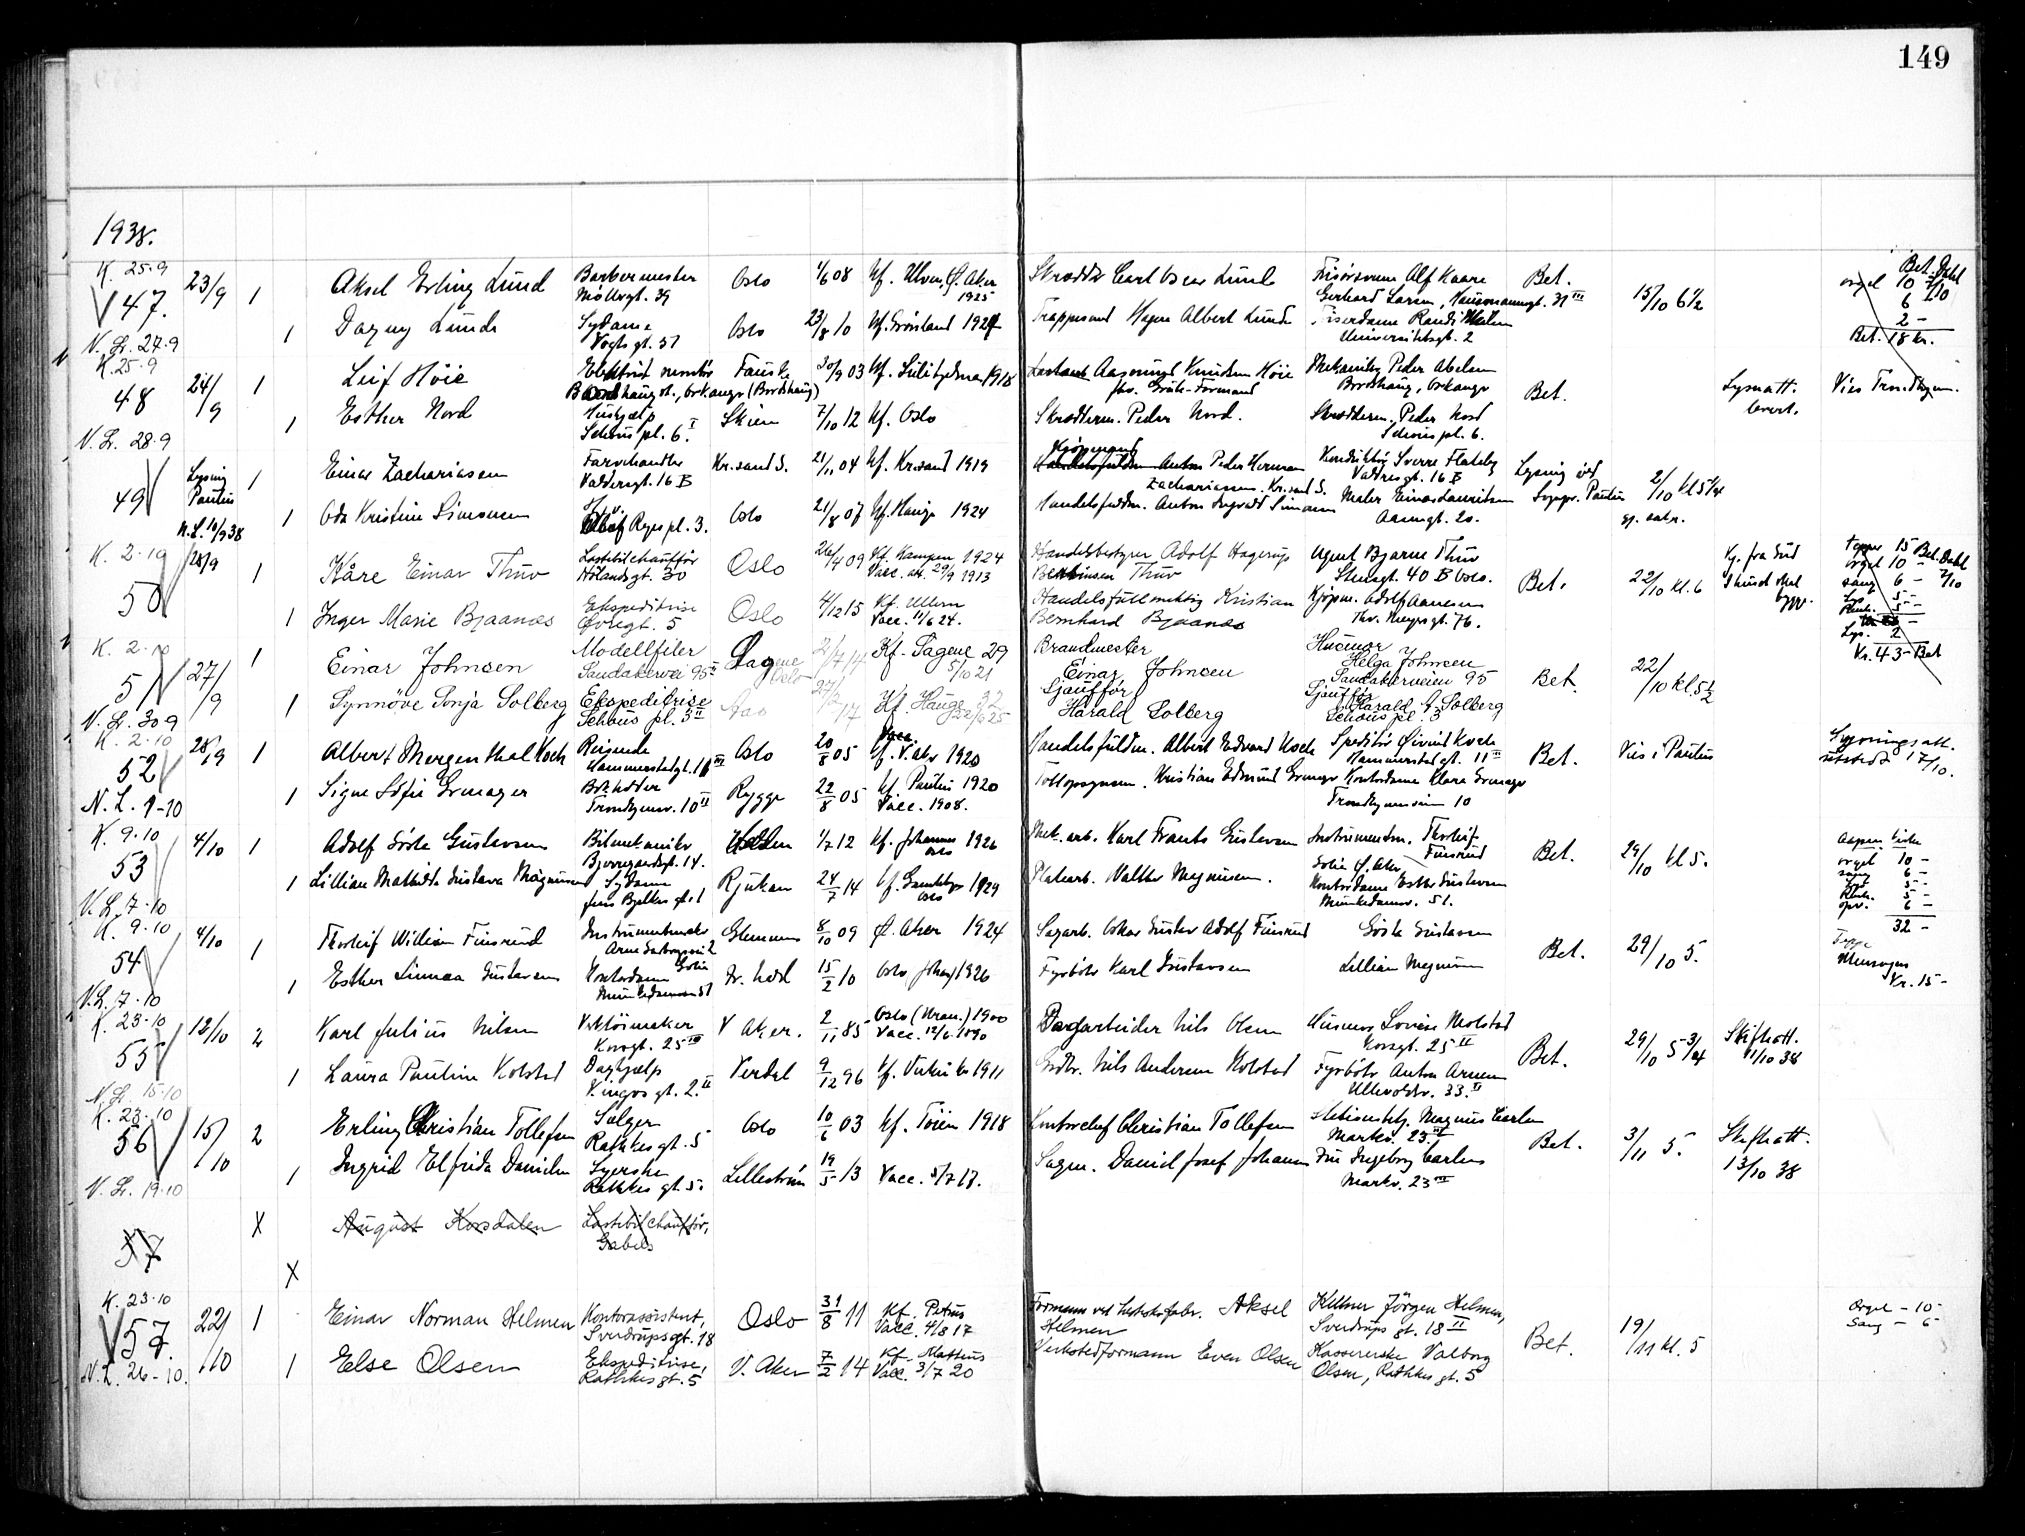 149
1938.
K. 25.9
47.
N. L. 27.9
23/9
1
Aksel Erling Lund
Barbermester
Oslo
1/6 08
Kf. Ulven, Ø. Aker
1925
Carl Oscar Lund
Alf Kaare
Gerhard Larsen, Hausmannsgt. 31 III
Bet.
15/10 6½
orgel 10
6
2 -
Bet. 18 kr.
Bet. Dahl
1
Dagny Lunde
Sydame
Vogtsgt. 51
Oslo
23/8 10
Kf. Grønland 1924
Hagen Albert Lunde
Universitetsgt. 2
K. 25.9
48
N. L. 28.9
24/9
1
Leif Höie
Elektrisk montør
Fauske
20/9 03
Kf. Sulitjelma 1918
Aasmund Knudsen Höie
Peder Abelsen
Bårdshaug, Orkanger
Bet.
Lysnatt.
levert.
Vies Trondhjem.
1
Esther Nord
Hushjelp
Schous pl. 6. I
Skien
7/10 12
Kf. Oslo
Skredderm. Peder Nord.
Skredderm. Peder Nord
Schous pl. 6.
49
Lysning
Paulus
N.L. 10/9 38
1
Einar Zachariasen
Farvehandler
Valdersgt. 16 B
Kr.sand S.
21/11 04
Kf. Kr.sand 1919
Anton Peder Herman
Zachariassen, Kr.sand S.
Sverre Flateby
Valdresgt. 16 B
Lysning
Paulus
2/10 kl 5¼
1
Oda Kristine Simonsen
Olaf Ryes pl. 3.
Oslo
21/8 07
Kf. Hauge 1924
Anton Ingvald Simonsen
Maler Einar Lauritsen
K. 2.10
50
28/9
1
Kåre Einar Thuv
Lastebilchauffør
Hølandsgt. 30
Oslo
26/4 09
Kf. Kampen 1924
Vacc. att. 29/9 1913
Handelsbestyrer Adolf Hagerup
Thuv
Agent Bjarne Thuv
Stensgt. 40 B Oslo.
Bet.
22/10 kl. 6
tepper 15
orgel 10 -
sang 6 -
Lys 5 -
Bet. Dahl
7/10
Lys. 2
Kr. 43 - Bet
1
Inger Marie Bjaanæs
Ekspeditrise
Øvregt. 5
Oslo
4/12 15
Kf. Ullern
Vacc. 11/6 24.
Handelsfullmektig Kristian
Bernhard Bjaanæs
Kjøpm. Adolf Aanesen
Thv. Meyersgt. 76.
K. 2.10
51
N. L. 30.9
27/9
1
Einar Johnsen
Modellfiler
Sandakerve 95 II
Sagene
Oslo
2/7 14
Kf. Sagene 29
5/10 21
Brandmester
Einar Johnsen
Husmor
Helga Johnsen
Sandakerveien 95
Bet.
22/10 kl. 5½
1
Synnöve Sonja Solberg
Ekspeditrise
Schous pl. 3 II
Kf. Hauge 32
Sjauffør
Harald Solberg
Sjauffør
Harald G. Solberg
Schous pl. 3
K. 2.10
52
N. L. 4-10
28/9
1
Albert Mergenthal Koch
Reisende
Hammerstadgt. 11 III
Oslo
20/8 05
Kf. V. Aker 1920
Handelsfuldm. Albert Edvard Koch
Speditør Øivind Koch
Hammerstadgt. 11 III
Bet.
Vies i Paulus
Lysningsatt.
utstedt 17/10.
1
Signe Sofie Ermager
Bokholder
Trondhjemsv. 10 II
Rygge
22/8 05
Kf. Paulus 1920
Vacc. 1908.
Kristian Edmund Ermager
Kontordame Klara Ermager
Trondhjemsveien 10
K. 9.10
53
N. L. 7.10
4/10
1
Adolf Gösta Gustavsen
Bilmekaniker
Bjerregaardsgt. 14.
1/7 12
Kf. Johannes 1926
Oslo
Mek. arb. Karl Frants Gustavsen
Instrumentm. Thorleif
Finsrud
Bet.
29/10 kl 5.
orgel 10 -
sang 6 -
5 -
5 -
6 -
32 -
1
Lillian Mathilde Gustava Magnussen
Sydame
Jens Bjelkes gt. 1
Rjukan
24/7 14
Kf. Gamlebyen 1929
Oslo
Platearb. Walther Magnussen.
Kontordame Esther Gustavsen
Munkedamsv. 51.
K. 9.10
54
N.L. 7.10
4/10
1
Thorleif William Finsrud
Instrumentmaker
Glemmen
8/10 09
Ø. Aker 1924
Sagarb. Oskar Gustav Adolf Finsrud
Gösta Gustavsen
Bet.
29/10 5.
Teppe
Kr. 15 -
1
Esther Linnea Gustavsen
Kontordame
Munkedamsv 51
15/2 10
Oslo, Johs. 1926
Fyrbøter Karl Gustavsen
Lillian Magnussen
K. 23.10
55
N. L. 15.10
13/10
2
Karl Julius Nilsen
Vektøimaker
Korsgt. 25 III
V Aker.
2/11 85
Oslo (Uran.) 1900
Vacc. 12/6 1890
Nils Olsen
Husmor Lovise Molstad
Korsgt. 25 II
Bet.
29/10 5 3/4
Skifteatt.
11/10 38
1
Laura Pauline Kolstad
Daghjælp
Kingosgt. 2. II
Verdal
9/12 96
Kf. Vinkeln 1911
Grdbr. Nils Andersen Kolstad
Fyrbøter Anton Arnesen
Ullevoldsv. 33. II
K. 23.10
56
N. L. 19.10
15/10
2
Erling Christian Tollefsen
Selger
Rathkes gt. 5
Oslo
10/6 03
Kf. Tøien 1918
Kontorchef Christian Tollefsen
Magnus Carlsen
Markv. 23 III
Bet.
3/11 5.
Skifteatt.
13/10 38
1
Ingrid Elfrida Danielsen
Syerske
Rathkes gt. 5.
Lillestrøm
19/5 13
Vacc. 5/7 17.
Sagm. Daniel Josef Johansen
Fru Ingeborg Carlsen
Markv. 23 III
57
X
August Korsdalen
Lastebilchauffør,
Gabels
X
K. 23.10
57.
N. L. 26-10.
22/10
1
Einar Norman Helmen
Kontorassistent,
Sverdrupsgt. 18
Oslo
31/8 11
Kf. Petrus
Vacc. 4/8 17
Formann ved Aksel
Helmen
Kelner Jörgen Helmen,
Sverdrups gt. 18 II
Bet.
19/11 kl. 5
Orgel - 10 -
Sang - 6 -
1
Else Olsen
Ekspeditrise,
Rathkes gt. 5
V. Aker
7/2 14
Kf. Matteus
Vacc. 3/7 20
Verkstedformann Even Olsen
Kassererske Valborg
Olsen, Rathkes gt. 5